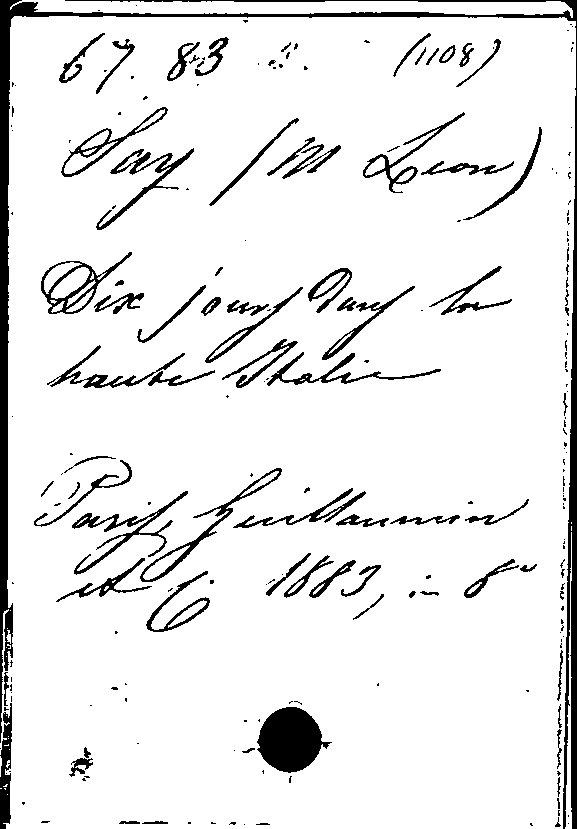 67. 83 (1108)
Say (M Leon)
Dix jours dans la
haute Italie
Paris, Guillaumin
et Cie 1883, in 8º